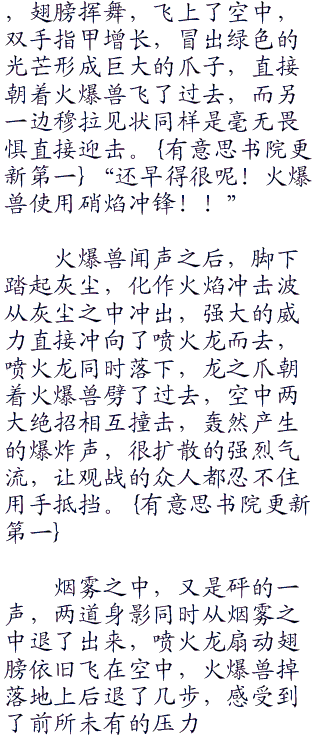 ，翅膀挥舞，飞上了空中，
双手指甲增长，冒出绿色的
光芒形成巨大的爪子，直接
朝着火爆兽飞了过去，而另
一边穆拉见状同样是毫无畏
惧直接迎击。{有意思书院更
新第一}“还早得很呢！火爆
兽使用硝焰冲锋！！”
火爆兽闻声之后，脚下
踏起灰尘，化作火焰冲击波
从灰尘之中冲出，强大的威
力直接冲向了喷火龙而去，
喷火龙同时落下，龙之爪朝
着火爆兽劈了过去，空中两
大绝招相互撞击，轰然产生
的爆炸声，很扩散的强烈气
流，让观战的众人都忍不住
用手抵挡。{有意思书院更新
第一}
烟雾之中，又是砰的一
声，两道身影同时从烟雾之
中退了出来，喷火龙扇动翅
膀依旧飞在空中，火爆兽掉
落地上后退了几步，感受到
了前所未有的压力